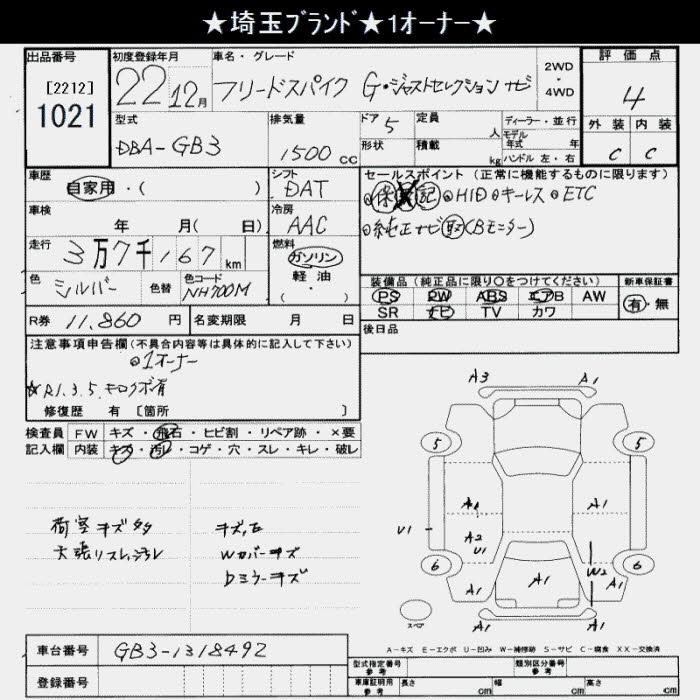 ★埼玉ブランド★1オーナー★
出品番号
[2212]
1021
初度登録年月
22 12月
車名・グレード
フリードスパイク G・ジャストセレクション ナビ
2WD
・
4WD
評価点
4
外装 内装
C C
型式
DBA-GB3
排気量
1500 CC
ドア 5
形状
定員 人
積載 kg
ディーラー・並行
モデル
年式 年
ハンドル 左・右
車歴
自家用・( )
シフト
DAT
車検
年 月( 日)
冷房
AAC
走行
3万7千167 km
燃料
ガソリン
軽油
( ・ )
色
シルバー
色替
色コード
NH700M
R券 11,860 円
名変期限 月 日
セールスポイント (正常に機能するものに限ります)
保 記 HID キーレス ETC
純正ナビ 取 (Bモニター)
装備品(純正品に限り○をつけてください)
PS PW ABS エアB AW
SR ナビ TV カワ
新車保証書
有・無
後日品
注意事項申告欄(不具合内容等は具体的に記入して下さい)
1オーナー
☆R1.3.5.キロクボ有
修復歴 有 [箇所 ]
検査員
記入欄
FW キズ・飛石・ヒビ割・リペア跡・×要
内装 キズ・汚レ・コゲ・穴・スレ・キレ・破レ
荷室キズ多タ
天張リスレ、ヨゴレ
キズ、E
Wカバーキズ
Dミラーキズ
A3 A1
5 5
A1
A2 U1
U1
A1
6 6
A1
W2
A1
A1
A1
A1
スペア
A-キズ E-エクボ U-凹み W-補修跡 S-サビ C-腐食 XX-交換済
車台番号 GB3-1318492
登録番号
型式指定番号
参考
類別区分番号
参考
車庫証明用
参考
長さ cm
幅 cm
高さ cm